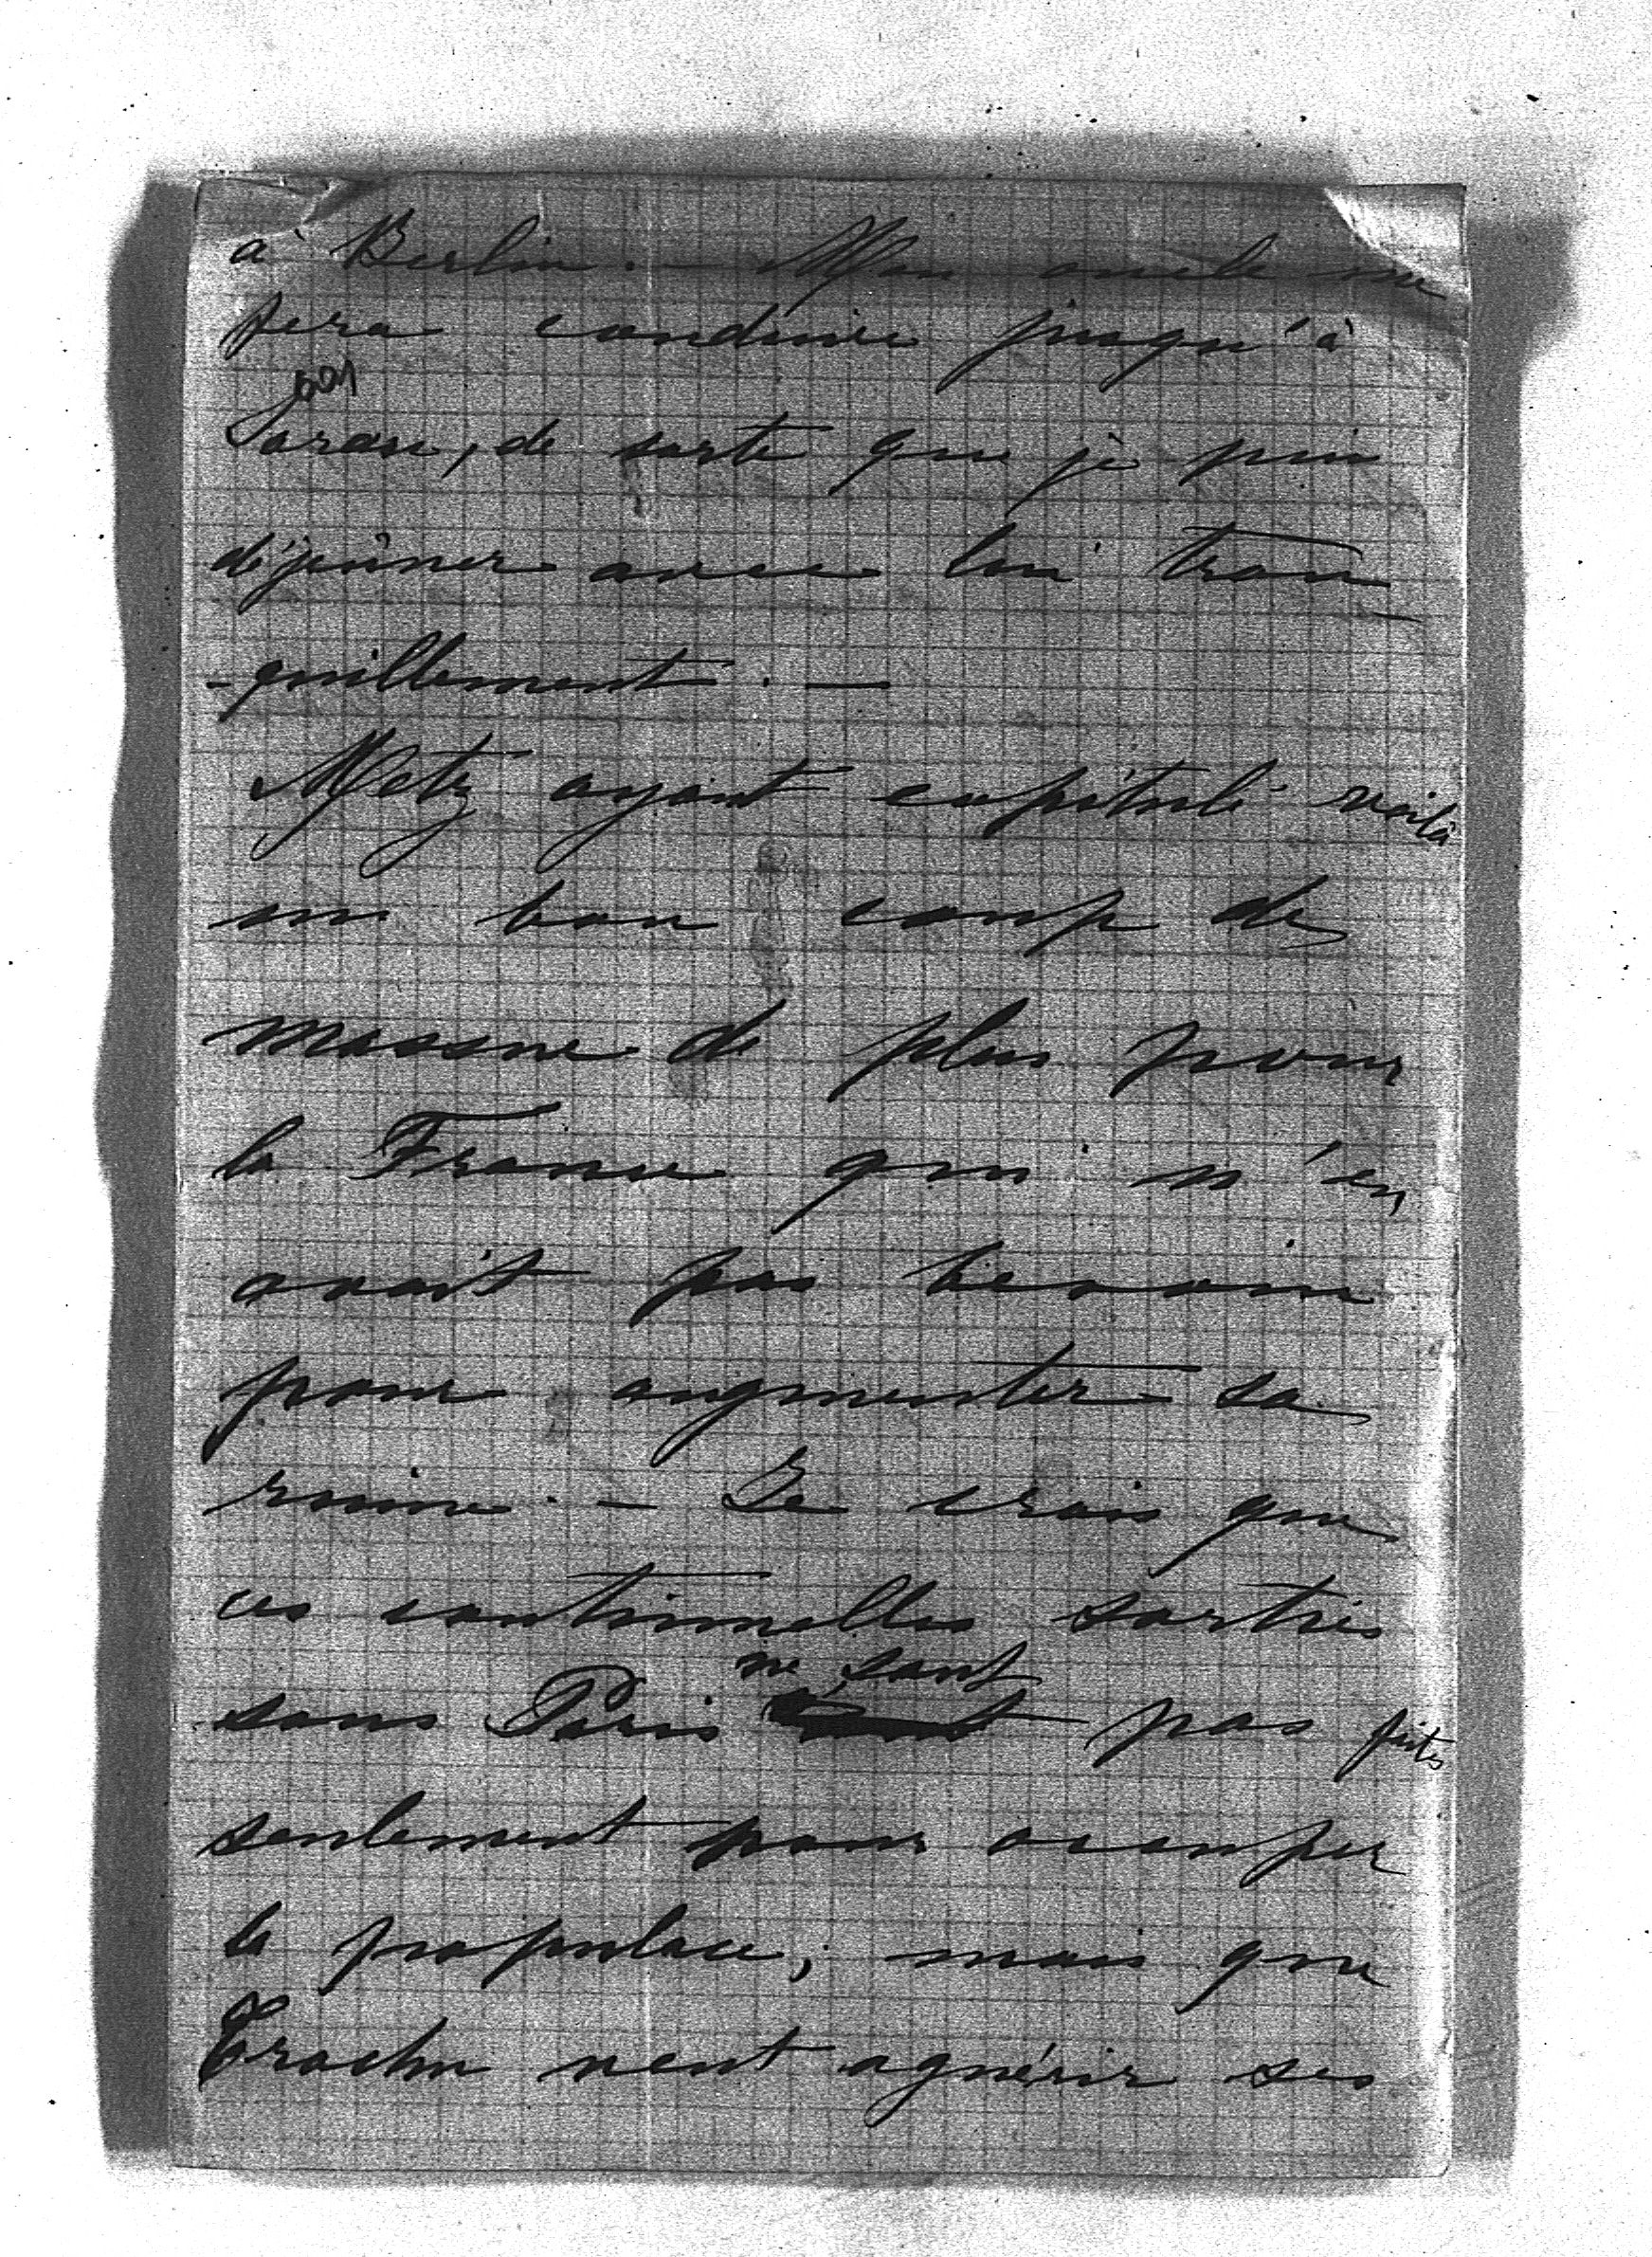 à Berlin. — Mon oncle me
fera conduire jusqu'à
Sorau, de sorte que je puis
déjeûner avec lui tran
-quillement. —
Metz ayant capitulé voilà
un bon coup de
massue de plus pour
la France qui n'en
avait pas besoin
pour augmenter sa
ruine. — Je crois que
ces continuelles sorties
ne sont
sous Paris pas faites
seulement pour occuper
la populace, mais que
Trochu veut aguérir ses